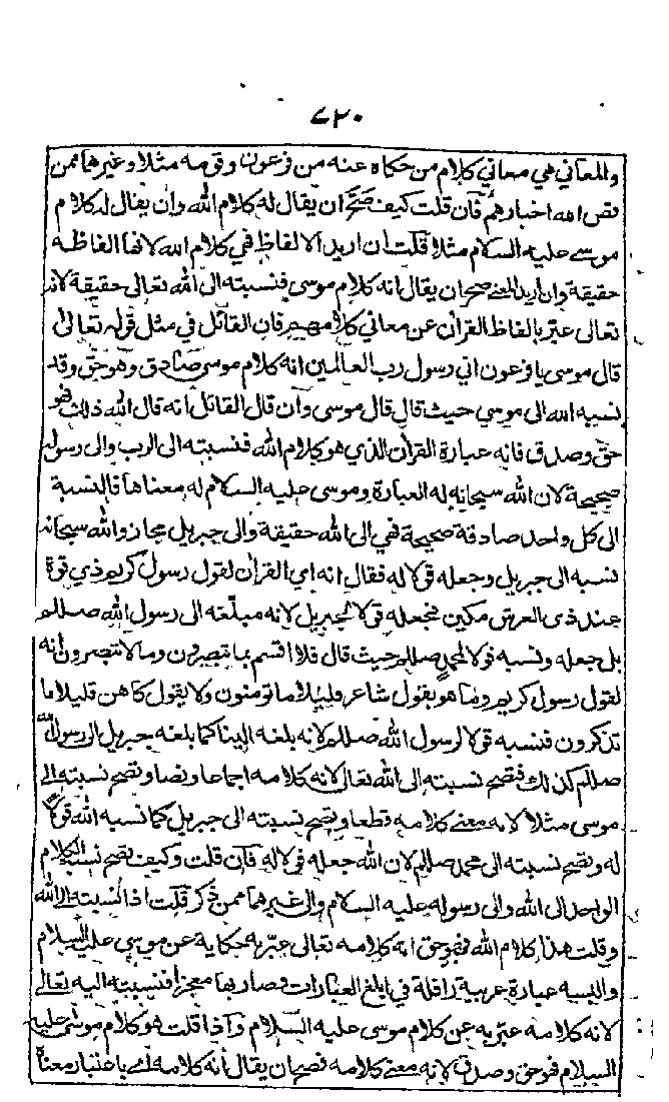 ٧٢٠
والمعاني هي معاني كلام من حكاه عنه من فرعون وقومه مثلا وغيرهما ممن
نص الله اخبارهم فان قلت كيف صح ان يقال له كلام الله وان يقال له كلام
موسى عليه السلام مثلا قلت ان اريد الالفاظ فهي كلام الله لانها الفاظه
حقيقة وان اريد المعنى صح ان يقال انه كلام موسى فنسبته الى الله تعالى حقيقة لانه
تعالى عبر بالفاظ القران عن معاني كلامهم فان القائل في مثل قوله تعالى
قال موسى يا فرعون اني رسول رب العالمين انه كلام موسى صادق وهو حق وقد
نسبه الله الى موسى حيث قال قال موسى وان قال القائل انه قال الله ذلك فهو
حق وصدق فانه عبارة القران الذي هو كلام الله فنسبته الى الرب والى رسوله
صحيحة لان الله سبحانه له العبارة وموسى عليه السلام له معناها فالنسبة
الى كل واحد صادقة صحيحة فهي الى الله حقيقة والى جبريل مجاز والله سبحانه
نسبه الى جبريل وجعله قولا له فقال انه اي القران لقول رسول كريم ذي قوة
عند ذي العرش مكين فجعله قولا لجبريل لانه مبلغه الى رسول الله صللم
بل جعله ونسبه قولا لمحمد صللم حيث قال فلا اقسم بما تبصرون وما لا تبصرون انه
لقول رسول كريم وما هو بقول شاعر قليلا ما تومنون ولا بقول كاهن قليلا ما
تذكرون فنسبه قولا لرسول الله صللم لانه بلغه الينا كما بلغه جبريل الى رسول الله
صللم كذلك فتصح نسبته الى الله تعالى لانه كلامه اجماعا ونصا وتصح نسبته الى
موسى مثلا لانه معنى كلامه قطعا وتصح نسبته الى جبريل كما نسبه الله قولا
له وتصح نسبته الى محمد صللم لان الله جعله قولا له فان قلت وكيف تصح نسبة الكلام
الواحد الى الله والى رسوله عليه السلام والى غيرهما ممن ذكر قلت اذا نسبته الى الله
وقلت هذا كلام الله فهو حق انه كلامه تعالى عبر به حكاية عن موسى عليه السلام
والبسه عبارة عربية رافلة في ابلغ العبارات وصار بها معجزا فنسبته اليه تعالى
لانه كلامه عبر به عن كلام موسى عليه السلام واذا قلت هو كلام موسى عليه
السلام فهو حق وصدق لانه معنى كلامه فصح ان يقال انه كلامه اي باعتبار معناه